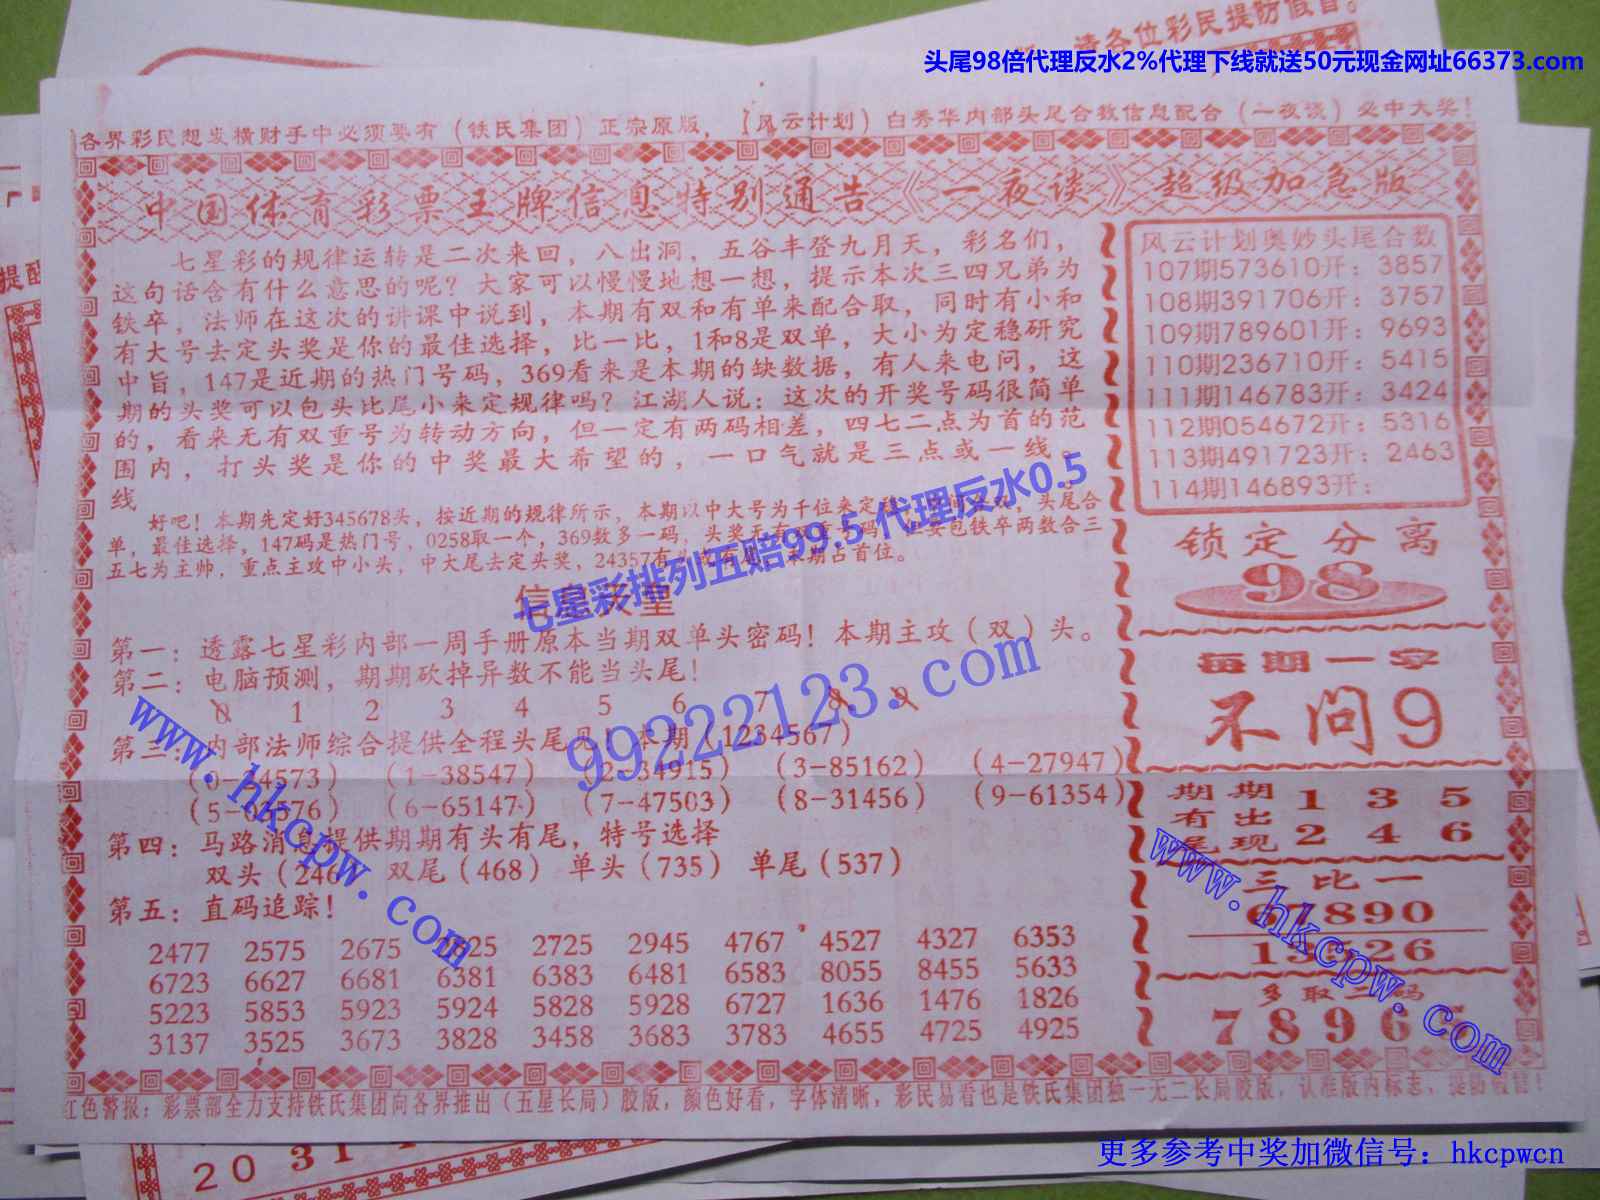 请各位彩民提防假冒。
头尾98倍代理反水2%代理下线就送50元现金网址66373.com
各界彩民想发横财手中必须要有（铁氏集团）正宗原版，【风云计划】白秀华内部头尾合数信息配合（一夜谈）必中大奖！
中国体育彩票王牌信息特别通告《一夜谈》超级加急版
七星彩的规律运转是二次来回，八出洞，五谷丰登九月天，彩名们，
这句话含有什么意思的呢？大家可以慢慢地想一想，提示本次三四兄弟为
铁卒，法师在这次的讲课中说到，本期有双和有单来配合取，同时有小和
有大号去定头奖是你的最佳选择，比一比，1和8是双单，大小为定稳研究
中旨，147是近期的热门号码，369看来是本期的缺数据，有人来电问，这
期的头奖可以包头比尾小来定规律吗？江湖人说：这次的开奖号码很简单
的，看来无有双重号为转动方向，但一定有两码相差，四七二点为首的范
围内，打头奖是你的中奖最大希望的，一口气就是三点或一线。
线
好吧！本期先定好345678头，按近期的规律所示，本期以中大号为千位来定 头尾合
单，最佳选择，147码是热门号，0258取一个，369数多一码，头奖无有 要包铁卒两数合三
五七为主帅，重点主攻中小头，中大尾去定头奖，24357有 本期占首位。
七星彩排列五赔99.5 代理反水0.5
第一：透露七星彩内部一周手册原本当期双单头密码！本期主攻（双）头。
第二：电脑预测，期期砍掉异数不能当头尾！
0 1 2 3 4 5 6 7 8 9
第三：内部法师综合提供全程头尾见！本期（1234567）
（0-24573） （1-38547） （2-34915） （3-85162） （4-27947）
（5-03576） （6-65147） （7-47503） （8-31456） （9-61354）
第四：马路消息提供期期有头有尾，特号选择
双头（246 双尾（468） 单头（735） 单尾（537）
第五：直码追踪！
2477 2575 2675 2625 2725 2945 4767 4527 4327 6353
6723 6627 6681 6381 6383 6481 6583 8055 8455 5633
5223 5853 5923 5924 5828 5928 6727 1636 1476 1826
3137 3525 3673 3828 3458 3683 3783 4655 4725 4925
风云计划奥妙头尾合数
107期573610开：3857
108期391706开：3757
109期789601开：9693
110期236710开：5415
111期146783开：3424
112期054672开：5316
113期491723开：2463
114期146893开：
锁定分离
98
每期一字
不问9
期期 1 3 5
有出
尾现 2 4 6
三比一
67890
多取二码
7 8 9 6
99222123.com
www.hkcpw.com
www.hkcpw.com
红色警报：彩票部全力支持铁氏集团向各界推出（五星长局）胶版，颜色好看，字体清晰，彩民易看也是铁氏集团独一无二长局胶版，认准版内标志，提防
20 31
更多参考中奖加微信号：hkcpwcn